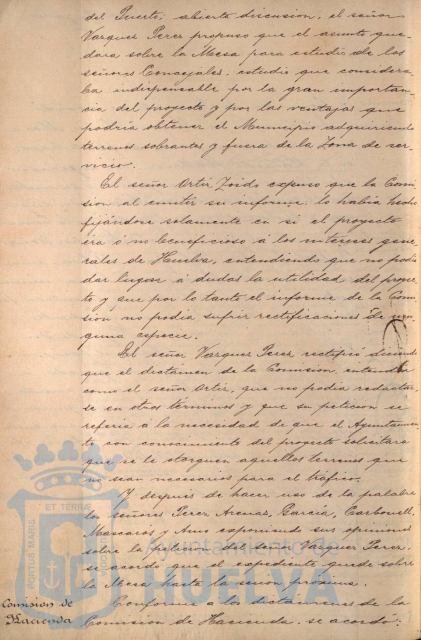 del Puerto; abierta discusion, el señor
Vazques Perez propuso que el asunto que-
dara sobre la Mesa para estudio de los
señores Concejales, estudio que considera-
ba indispensable por la gran importan-
cia del proyecto y por las ventajas que
podria obtener el Municipio adquiriendo
terrenos sobrantes y fuera de la zona de ser-
vicio.
El señor Ortiz Zoido expuso que la Comi-
sion al emitir su informe, lo habia hecho
fijándose solamente en si el proyecto
era ó no beneficioso á los intereses gene-
rales de Huelva, entendiendo que no podia
dar lugar á dudas la utilidad del proyec-
to y que por lo tanto el informe de la Comi-
sion no podia sufrir rectificaciones de nin-
guna especie.
El señor Vazques Perez rectificó diciendo
que el dictámen de la Comision, entendia
como el señor Ortiz, que no podia redactar-
se en otros términos y que su peticion se
referia á la necesidad de que el Ayuntamien-
to con conocimiento del proyecto solicitara
que se le otorguen aquellos terrenos que
no sean necesarios para el tráfico.
Y despues de hacer uso de la palabra
los señores Perez Arenas, Garcia, Carbonell,
Mascarós y Amo exponiendo sus opiniones
sobre la peticion del señor Vazquez Perez,
se acordó que el expediente quede sobre
la Mesa hasta la sesion próxima.
Comision de
Hacienda
Conforme á los dictámenes de la
Comision de Hacienda, se acordó:
ET TERRÆ
PORTUS MARIS
Ayuntamiento de
HUELVA